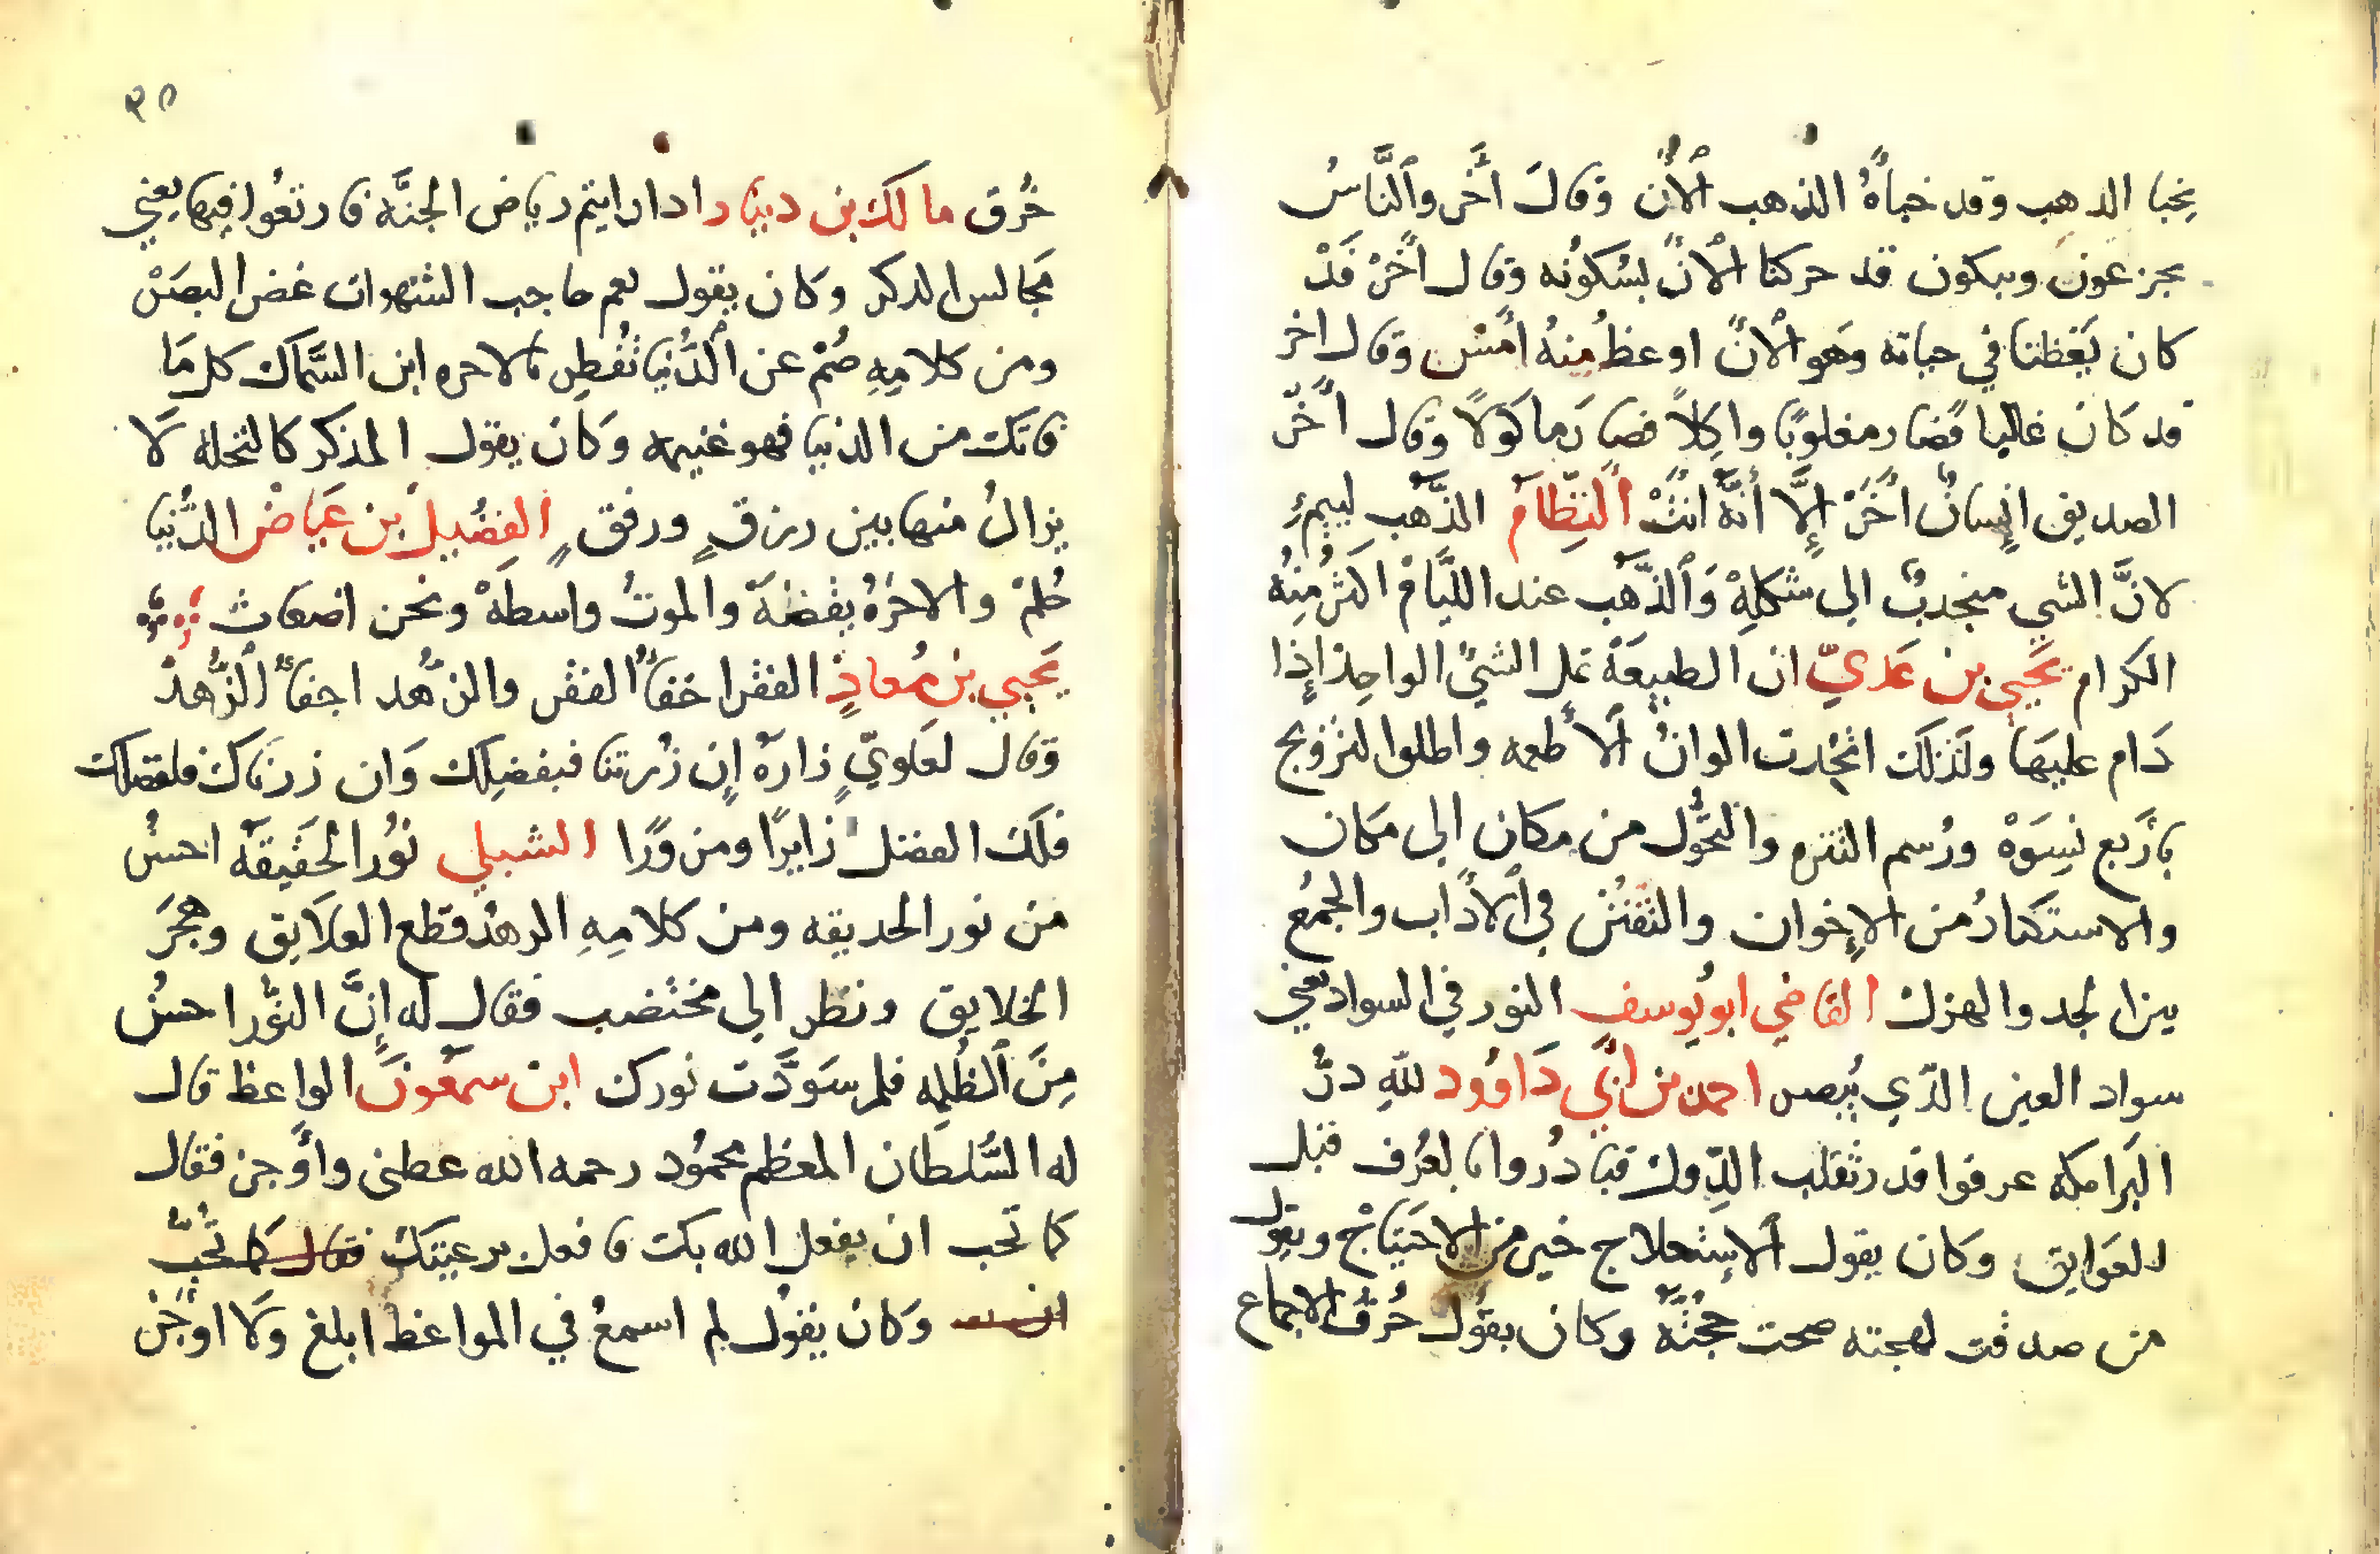 يخبا الذهب وقد خباهُ الذهب الان وقال اخر والنَّاسُ
يجزعون ويبكون قد حركنا الان بسكونه وقال اخر قَدْ
كان يَعِظنا في حياته وهو الانَ اوعظ مِنهُ امس وقال اخر
قد كان غالبا فصار مغلوبًا واكِلاً فصار ماكولاً وقال اخر
الصديق اِنسانٌ اخَرْ إلَّا أنَّهُ انتْ النظّام الذَّهَب ليئمٌ
لانَّ الشي منجدبٌ الى شكلِهْ وَالذَّهَب عند الليَّام اكثرُ مِنهُ
الكرام يَحيي بن عَدىّ ان الطبيعَهْ تمل الشئ الواحِد إذا
دَام عليهَا ولذلك اتُّخِدت الوانُ الاطعمه واطلوا لتزويج
بارَبع نِسوَهْ ورُسم التنزه والتحوُّل من مكان الي مكان
والاستكثارُ من الاِخوان والتفنُّن في الادَاب والجمُع
بين الجد والهزل القاضي ابو يُوسف النور في السواد يعني
سواد العين الذّي يُبصر احمد بن اَبي دَاوُود لله درُّ
البَرامكه عرفوا قدر تقلب الدّول فبادُروا بالعُرف قبل
العَوايق وكان يقول الاستعلاج خير من الاحتيَاج ويقول
من صدقت لهجته صحت حجتَّه وكان يقُول خُرق الاجماع
٢٥
خُرق مالك بن دينار اداراايتم رياض الجنَّه فارتعُوا فيها يعني
مَجالس الدكر وكان يقول نعم حاجب الشهوات غض البصَرْ
ومن كلامِهِ صُمْ عن الدُّنيا تُفطِر بالاخره ابن السَّماك كل مَا
فاتك من الدنيا فهو غنيمه وَكان يقول المذكر كالنحله لَا
يزالُ منها بين رزقٍ ورفقٍ الفُضَيلْ بن عَيَاضْ الدُّنيا
حُلمْ والاخرَهُ يقظَهَ والموتُ واسطهْ ونحن اضغاث
يَحيي بن مُعاذٍ الفقر اخفاُ الفقر والزُّهد اجفاُ الزُّهدْ
وقالَ لعلويٍّ زارَهُ إن زُرتنا فبفضلِك وَان زرناك فلفضلك
فلَك الفضل زايرًا ومزورًا الشبلي نوُر الحقيقَه احسنُ
من نور الحديقه ومن كلامِهِ الزهد قطع العلايق وهجَرَ
الخلايق ونظر الي مختضب فقال له إنَّ النُّور احسنُ
مِنَ الظُلمِه فلم سَوَدَّت نورك ابن سمعُونَ الواعظ قال
له السُّلطان المعظم محمُود رحمه الله عطنى واوجز فقال
كما تحب ان يفعل الله بك فافعل برعيتك فقال كما تحُبّ
ان وكان يقول لم اسمعُ في المواعظ ابلغ وَلا اوجز